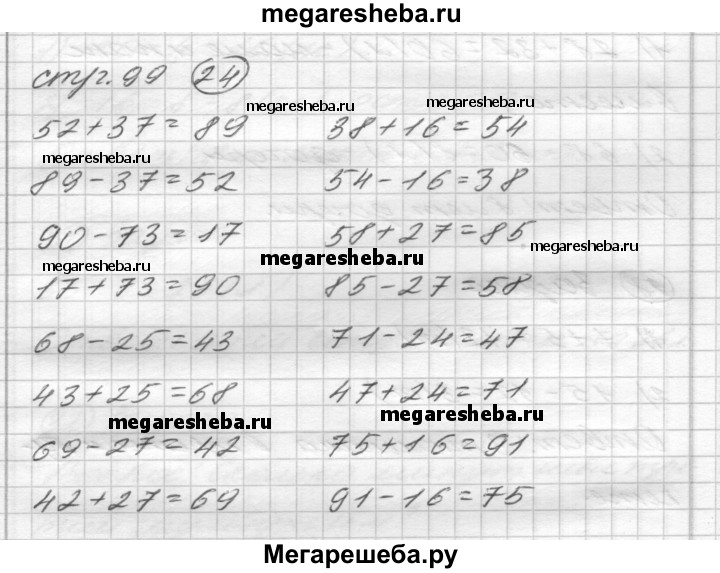 megaresheba.ru
стр. 99 24
megaresheba.ru megaresheba.ru
52+37=89 38+16=54
megaresheba.ru
89-37=52 54-16=38
90-73=17 58+27=85
megaresheba.ru
megaresheba.ru
megaresheba.ru
17+73=90 85-27=58
68-25=43 71-24=47
43+25=68 47+24=71
megaresheba.ru megaresheba.ru
69-27=42 75+16=91
42+27=69 91-16=75
Мегарешеба.ру